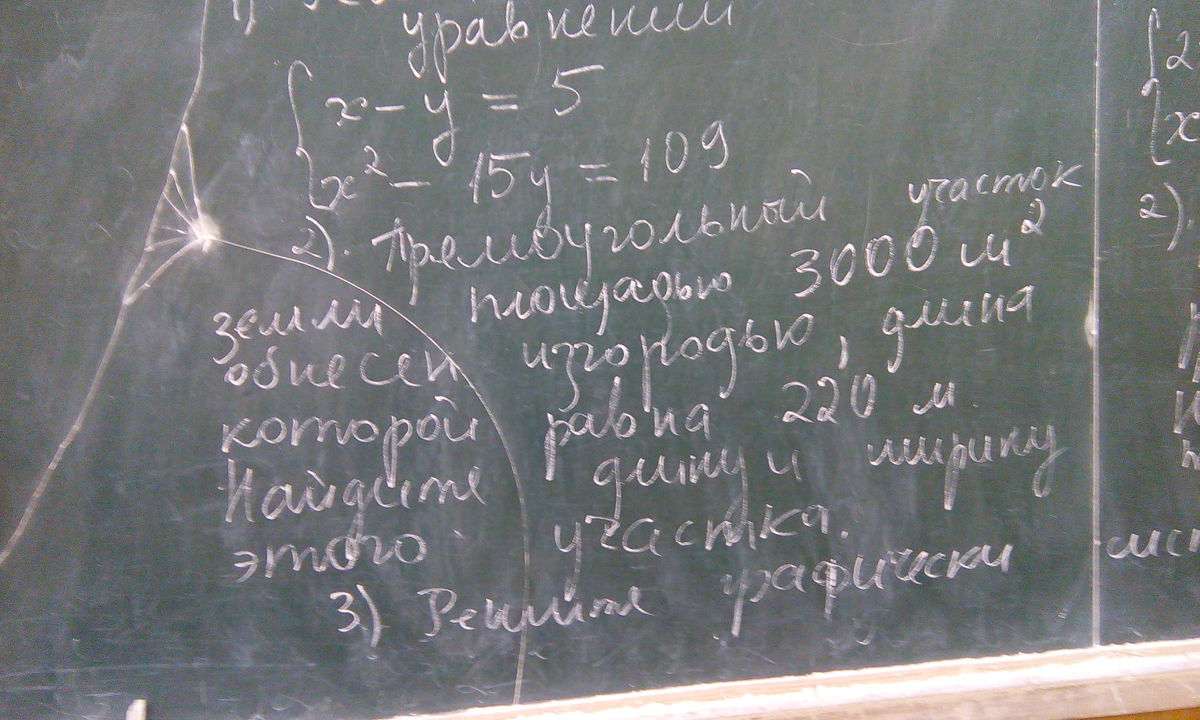 уравнений
x - y = 5
x² - 15y = 109
2). Прямоугольный участок
земли площадью 3000 м²
обнесен изгородью, длина
которой равна 220 м
Найдите длину и ширину
этого участка.
3) Решите графически
{2
{x
2).